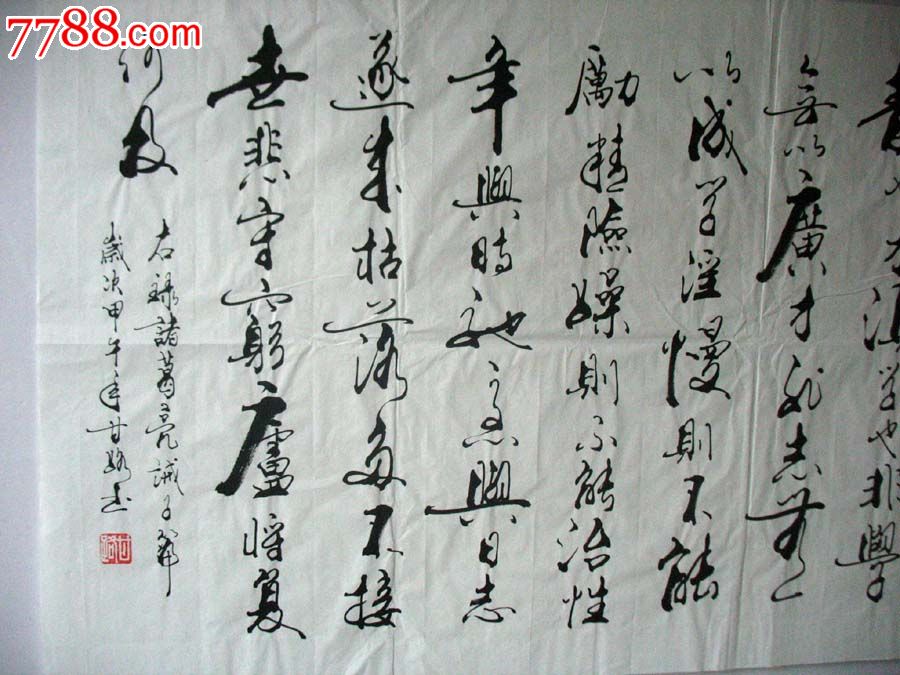 也才須學也非學
無以廣才非志無
以成學淫慢則不能
勵精險躁則不能治性
年與時馳意與日志
遂成枯落多不接
世悲守窮廬將复
何及
右錄諸葛亮誡子篇
歲次甲午年甘路书
7788.com